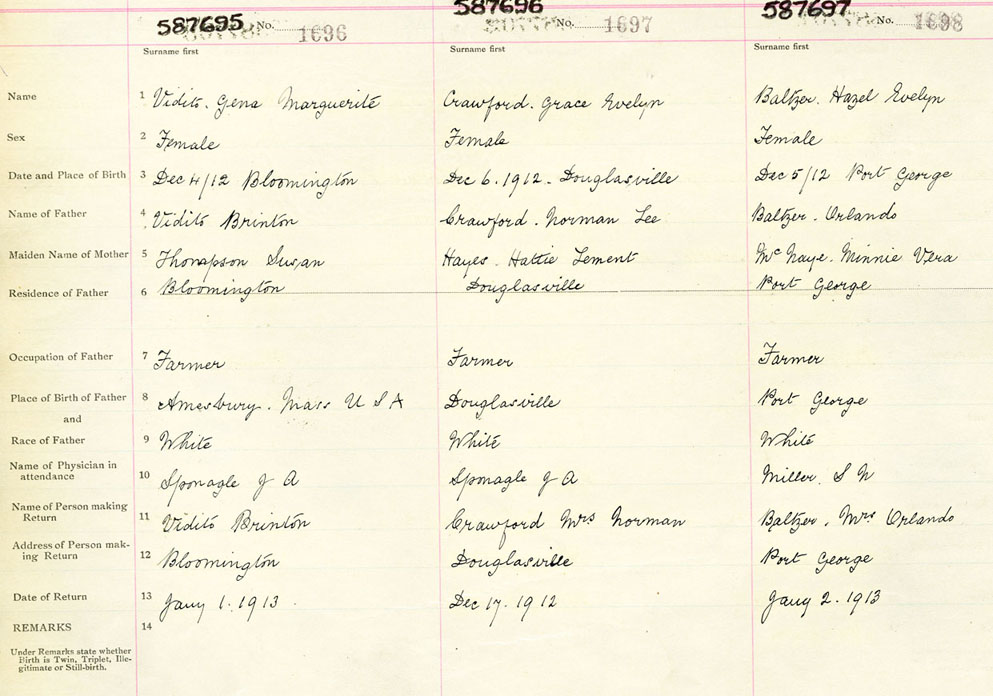 587695 No. 1696 587696 No. 1697 587697 No. 1698
Surname first Surname first Surname first
Name 1 Vidito. Gena Marguerite Crawford. Grace Evelyn Baltzer. Hazel Evelyn
Sex 2 Female Female Female
Date and Place of Birth 3 Dec 4/12 Bloomington Dec 6. 1912. Douglasville Dec 5/12 Port George
Name of Father 4 Vidito Brinton Crawford. Norman Lee Baltzer. Orlando
Maiden Name of Mother 5 Thompson Susan Hayes. Hattie Lement Mc Naye. Minnie Vera
Residence of Father 6 Bloomington Douglasville Port George
Occupation of Father 7 Farmer Farmer Farmer
Place of Birth of Father 8 Amesbury. Mass U S A Douglasville Port George
and
Race of Father 9 White White White
Name of Physician in
attendance 10 Sponagle J A Sponagle J A Miller. S N
Name of Person making
Return 11 Vidito Brinton Crawford Mrs Norman Baltzer. Mrs Orlando
Address of Person mak-
ing Return 12 Bloomington Douglasville Port George
Date of Return 13 Jany 1. 1913. Dec 17. 1912 Jany 2. 1913
REMARKS 14
Under Remarks state whether
Birth is Twin, Triplet, Ille-
gitimate or Still-birth.